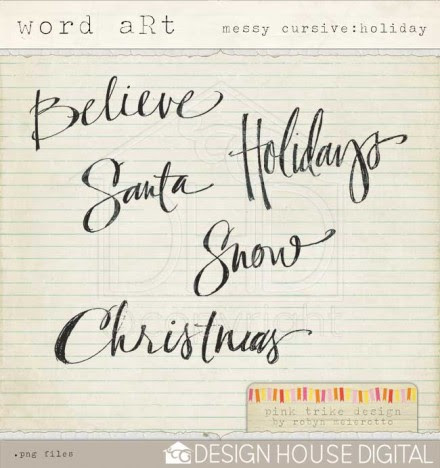 word aRt
messy cursive:holiday
Believe
Holidays
Santa
Snow
Christmas
pink trike design
by robyn meierotto
.png files
DESIGN HOUSE DIGITAL